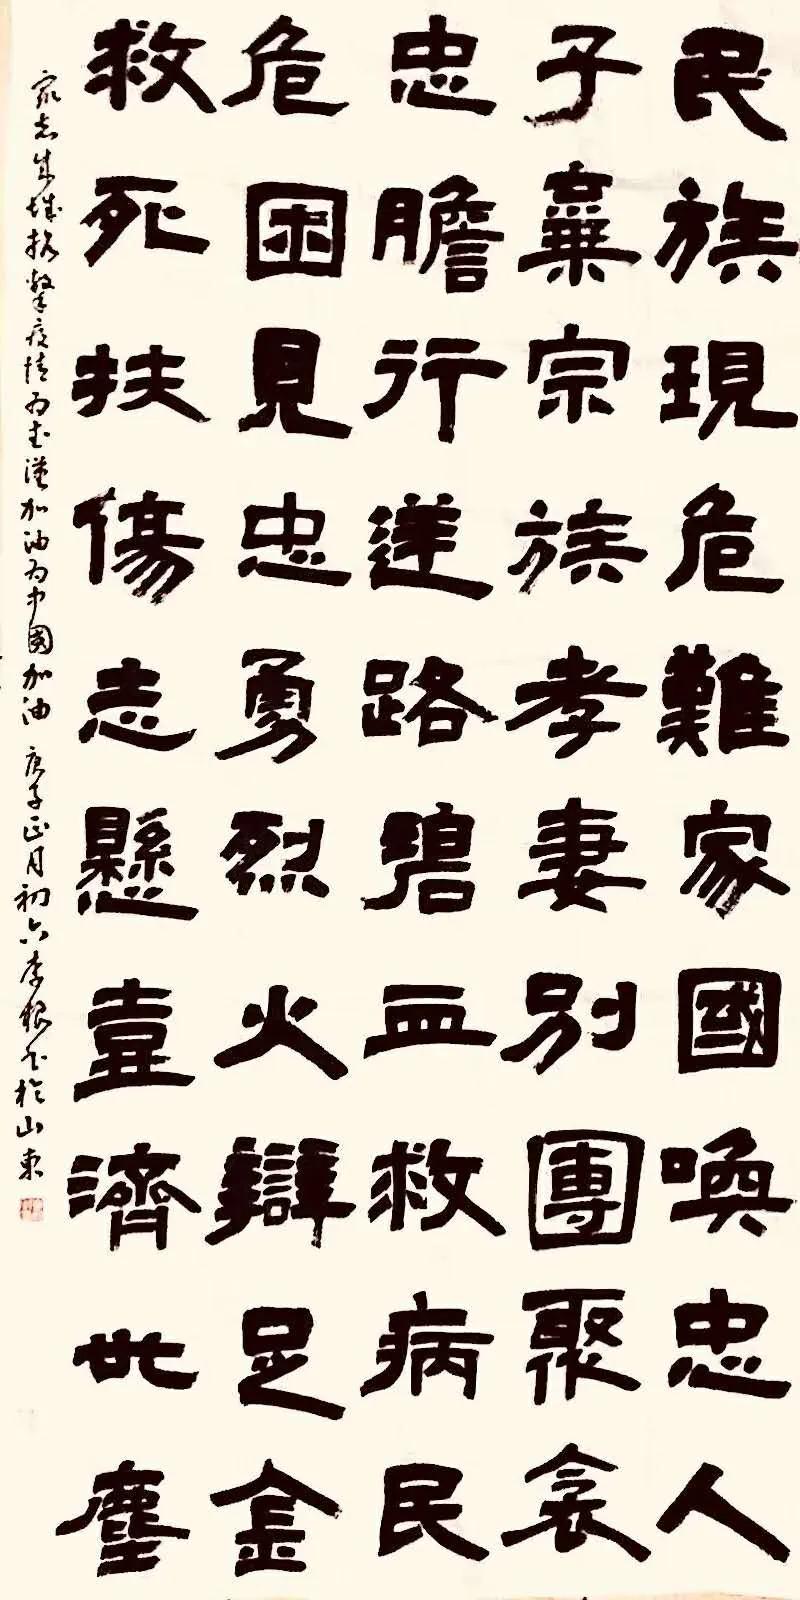 民族現危難家國喚忠人
子稟宗族孝妻別團聚衾
忠膽行逆路碧血救病民
危困見忠勇烈火辯足金
救死扶傷志懸壺濟世塵
眾志成城抗擊疫情为武漢加油为中國加油 庚子正月初六李根书於山東